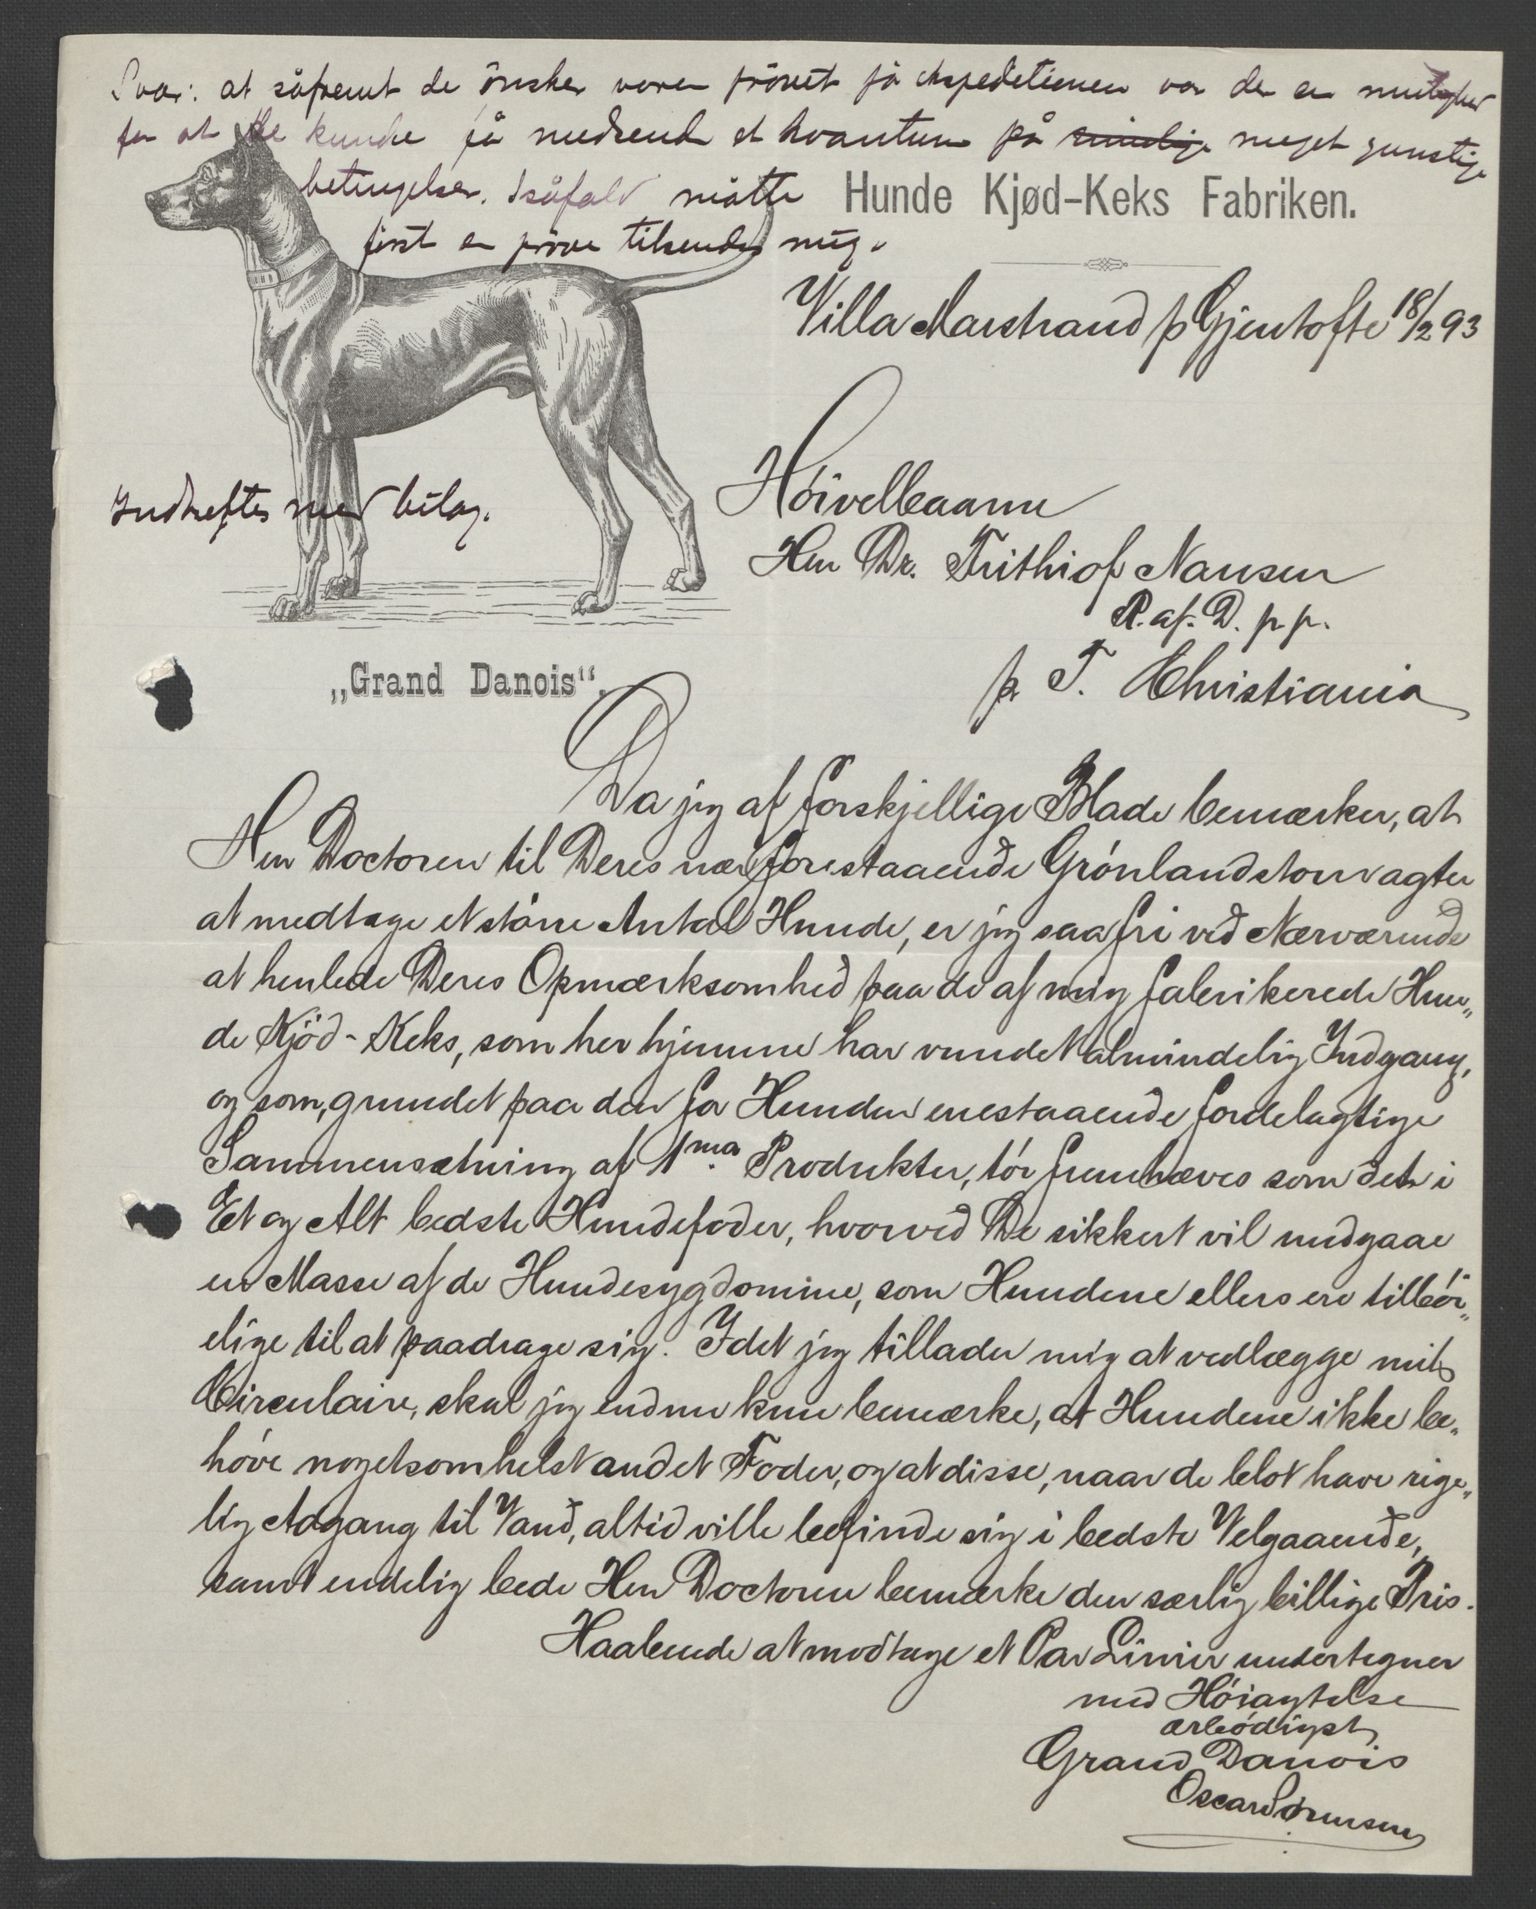 Svar: at såfremt de ønsker varen prövet på ekspeditionen var der en mulighed
for at de kunde få medsendt et kvantum på rimelige meget gunstige
betingelser. Isåfald måtte
först en pröve tilsendes mig.
Hunde Kjød-Keks Fabriken.
Villa Marstrand p Gjentofte 18/2 93
Indheftes med bilag.
Höivelbaarne
Herr Dr. Frithiof Nansen
R. af. D. p. p.
p. T. Christiania
„Grand Danois“.
Da jeg af forskjellige Blade bemærker, at
Herr Doctoren til Deres nær forestaaende Grönlandstour agter
at medtage et större Antal Hunde, er jeg saa fri ved Nærværende
at henlede Deres Opmærksomhed paa de af mig fabrikerede Hun„
de Kjöd-Keks, som her hjemme har vundet almindelig Indgang,
og som, grundet paa den for Hunden enestaaende fordelagtige
Sammensætning af 1ma Produkter, tör fremhæves som det i
Et og Alt bedste Hundefoder, hvorved De sikkert vil undgaae
en Masse af de Hundesygdomme, som Hundene ellers ere tilböi„
elige til at paadrage sig. Idet jeg tillader mig at vedlægge mit
Circulaire, skal jeg endnu kun bemærke, at Hundene ikke be„
höve nogetsomhelst andet Foder, og at disse, naar de blot have rige„
lig Adgang til Vand, altid ville befinde sig i bedste Velgaaende,
samt endelig bede Herr Doctoren bemærke den særlig billige Pris.
Haabende at modtage et Par Linier undertegner
med Höiagtelse
ærbödigst
Grand Danois
Oscar Sörensen